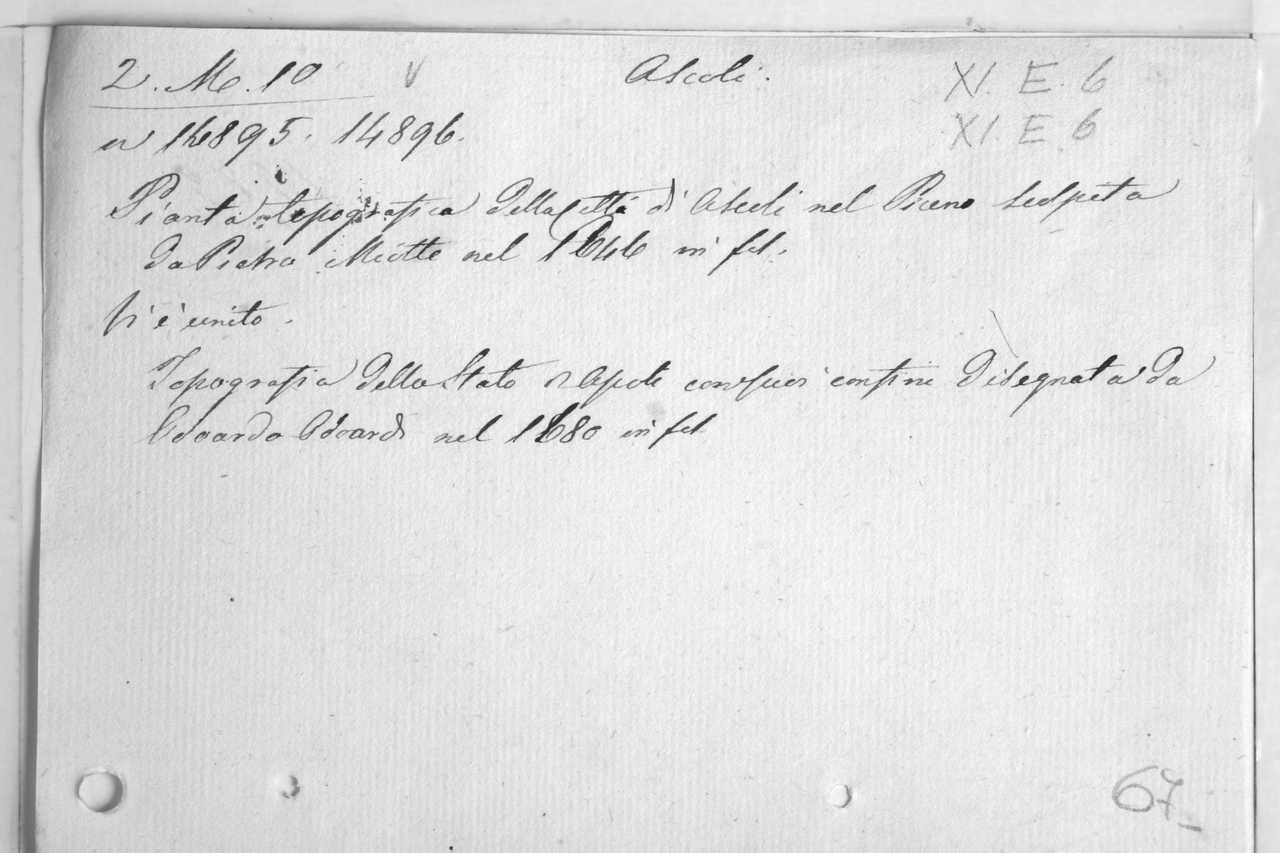 2. M. 10 V Ascoli. XI. E. 6
XI. E 6
n 14895. 14896.
Pianta topografica della Città di Ascoli nel Piceno scolpita
da Pietro Miotte nel 1646 in fol.
Vi è unito.
Topografia dello Stato Ascoli con suoi confini disegnata da
Odoardo Odoardi nel 1680 in fol
67